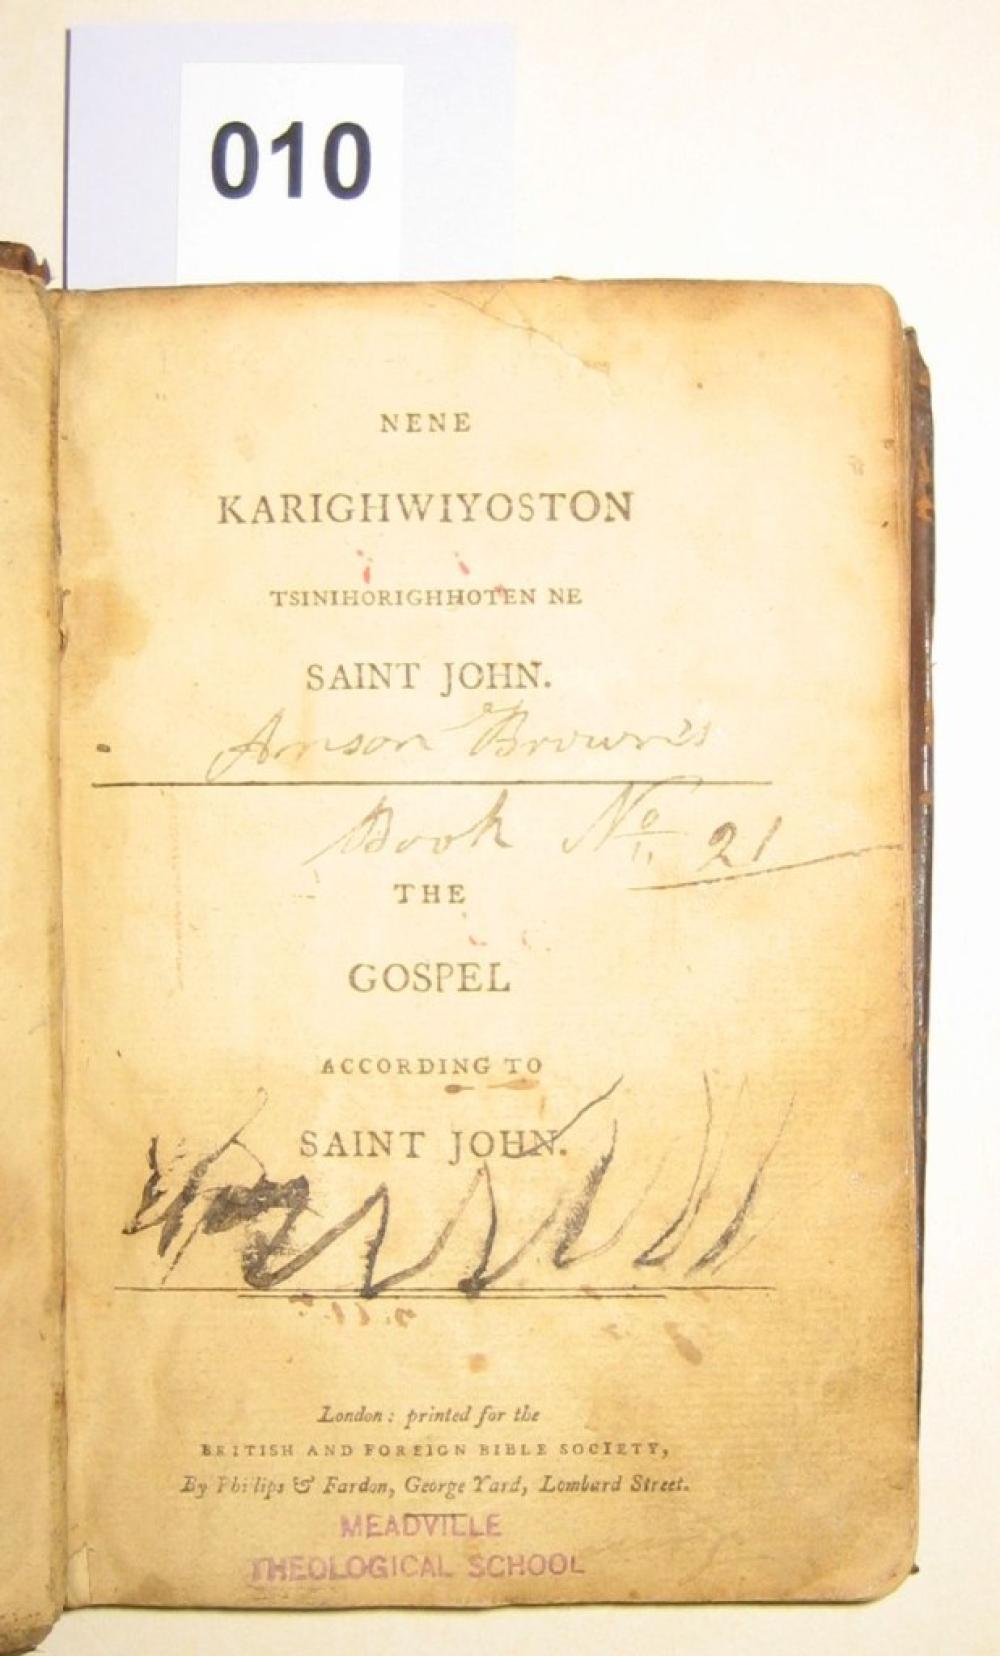 010
NENE
KARIGHWIYOSTON
TSINIHORIGHHOTEN NE
SAINT JOHN.
Anson Brown's
Book No 21
THE
GOSPEL
ACCORDING TO
SAINT JOHN.
London: printed for the
BRITISH AND FOREIGN BIBLE SOCIETY,
By Philips & Fardon, George Yard, Lombard Street.
MEADVILLE
THEOLOGICAL SCHOOL